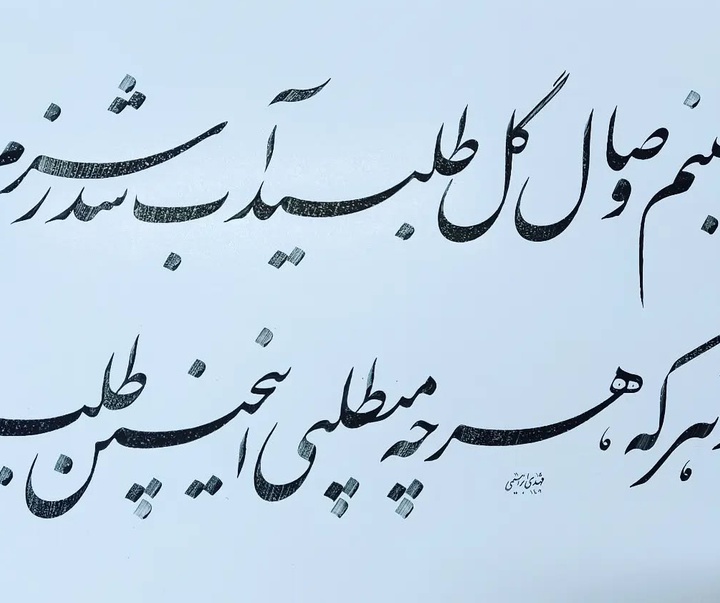 شبنم وصال گل طلبید آب شد ز شرم
هر که هر چه میطلبی اینچنین طلب